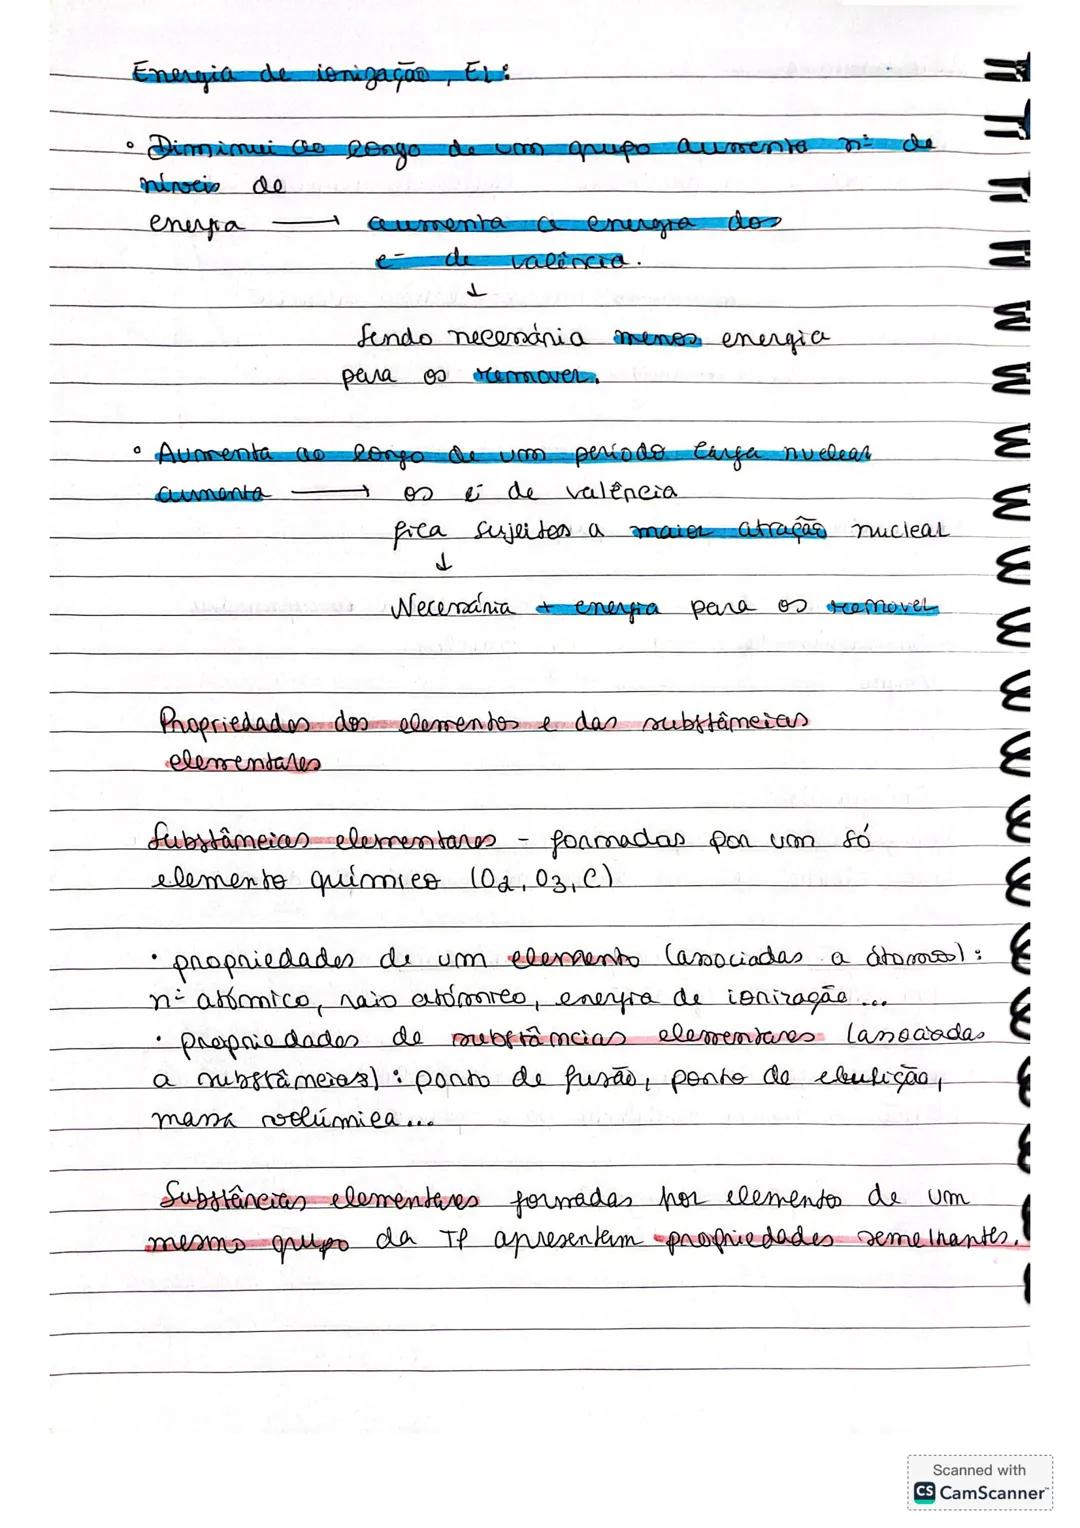 Energia de ionização, Ei:
• Diminui ao longo de um grupo aumenta nº de
níveis de
energia → aumenta a energia dos
e⁻ de valência.
↓
Sendo necessária menos energia
para os remover.
• Aumenta ao longo de um período carga nuclear
aumenta → os e⁻ de valência
fica sujeitos a maior atração nuclear
↓
Necessária + energia para os remover
Propriedades dos elementos e das substâncias
elementares
Substâncias elementares - formadas por um só
elemento químico (O2, O3, C)
• propriedades de um elemento (associadas a átomos):
nº atómico, raio atómico, energia de ionização...
• propriedades de substâncias elementares (associadas
a substâncias): ponto de fusão, ponto de ebulição,
massa volúmica...
Substâncias elementares formadas por elementos de um
mesmo grupo da TP apresentem propriedades semelhantes.
Scanned with
CS CamScanner